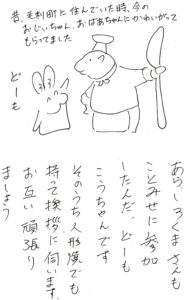 昔、毛利町に住んでいた時、今の
おじいちゃん、おばあちゃんにかわいがって
もらってました
どーも
あらしろくまさんも
ことみせに参加
したんだ。どーも
こうちゃんです
そのうち人形展でも
持て挨拶に伺います。
お互い頑張り
ましょう